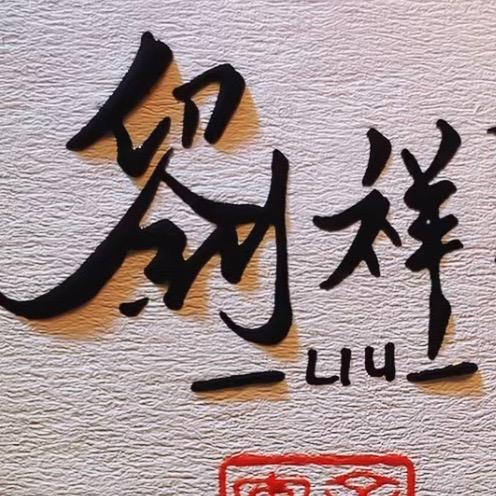 劉祥
LIU